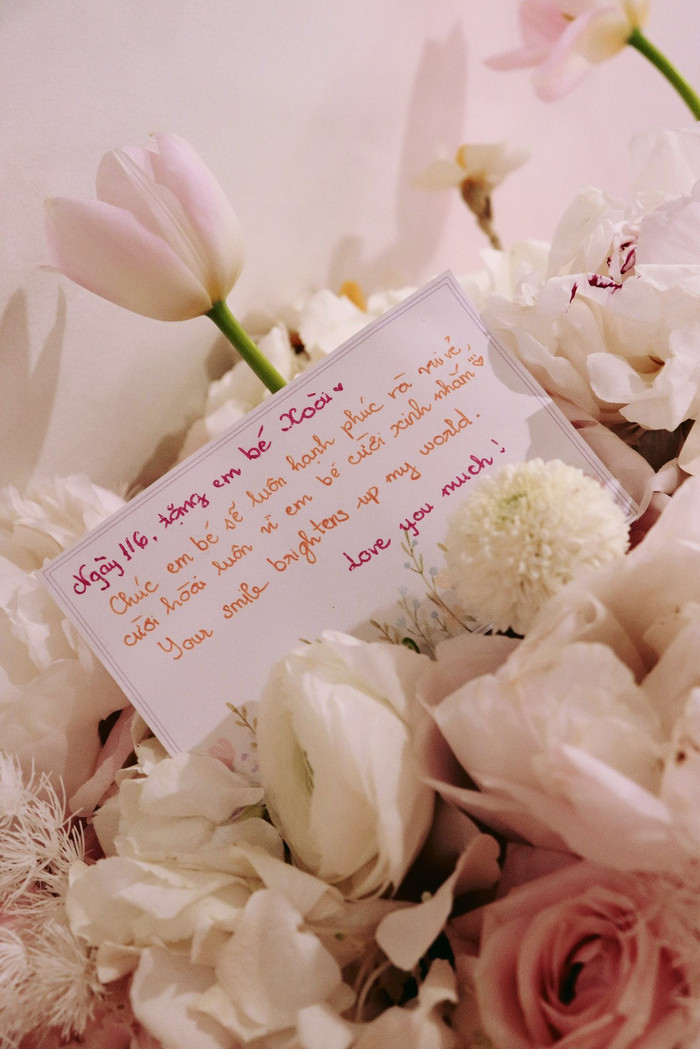 Ngày 1/6, tặng em bé Xoài ♥
Chúc em bé sẽ luôn hạnh phúc và vui vẻ,
cười hoài luôn vì em bé cười xinh nhắm
Your smile brightens up my world.
Love you much!